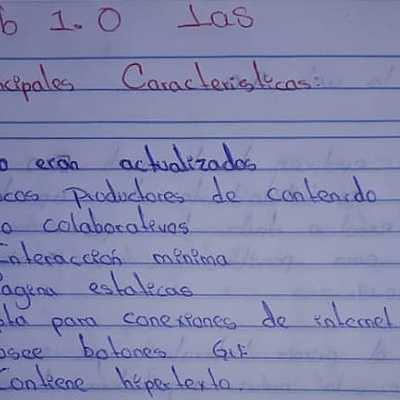 b 1.0 las
ncipales Caracteristicas:
o eran actualizados
cos Productores de contenido
o colaborativos
Interacción minima
agina estaticas
sta para conexiones de internet
osee botones GIF
Contiene hipertexto.